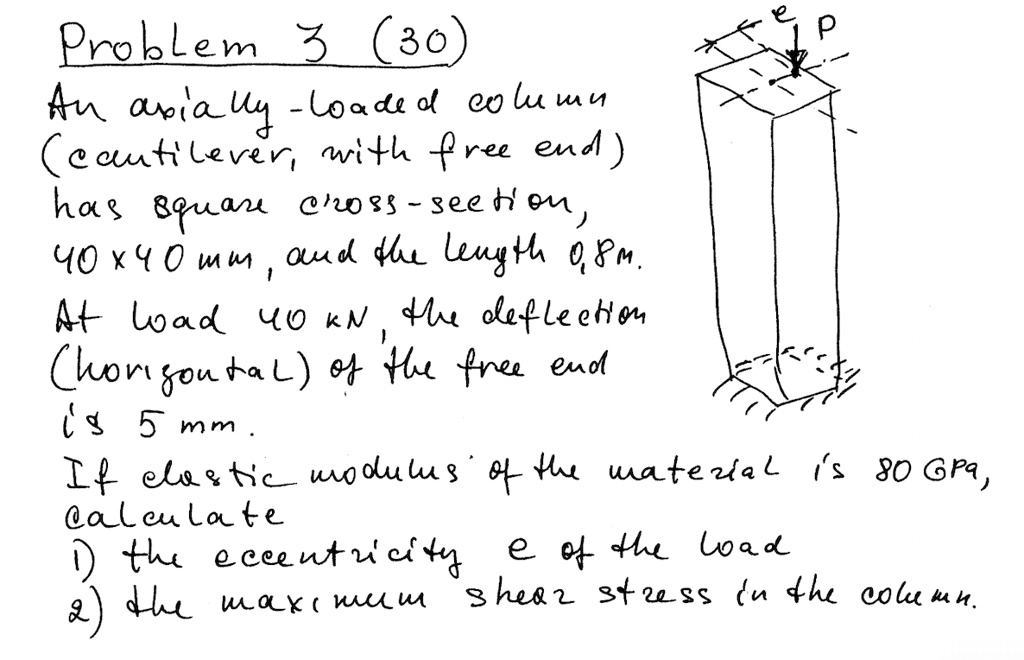 Problem 3 (30)
e P
An axially-loaded column
(cantilever, with free end)
has square cross-section,
40 x 40 mm, and the length 0,8 m.
At load 40 kN, the deflection
(horizontal) of the free end
is 5 mm.
If elastic modulus of the material is 80 GPa,
calculate
1) the eccentricity e of the load
2) the maximum shear stress in the column.